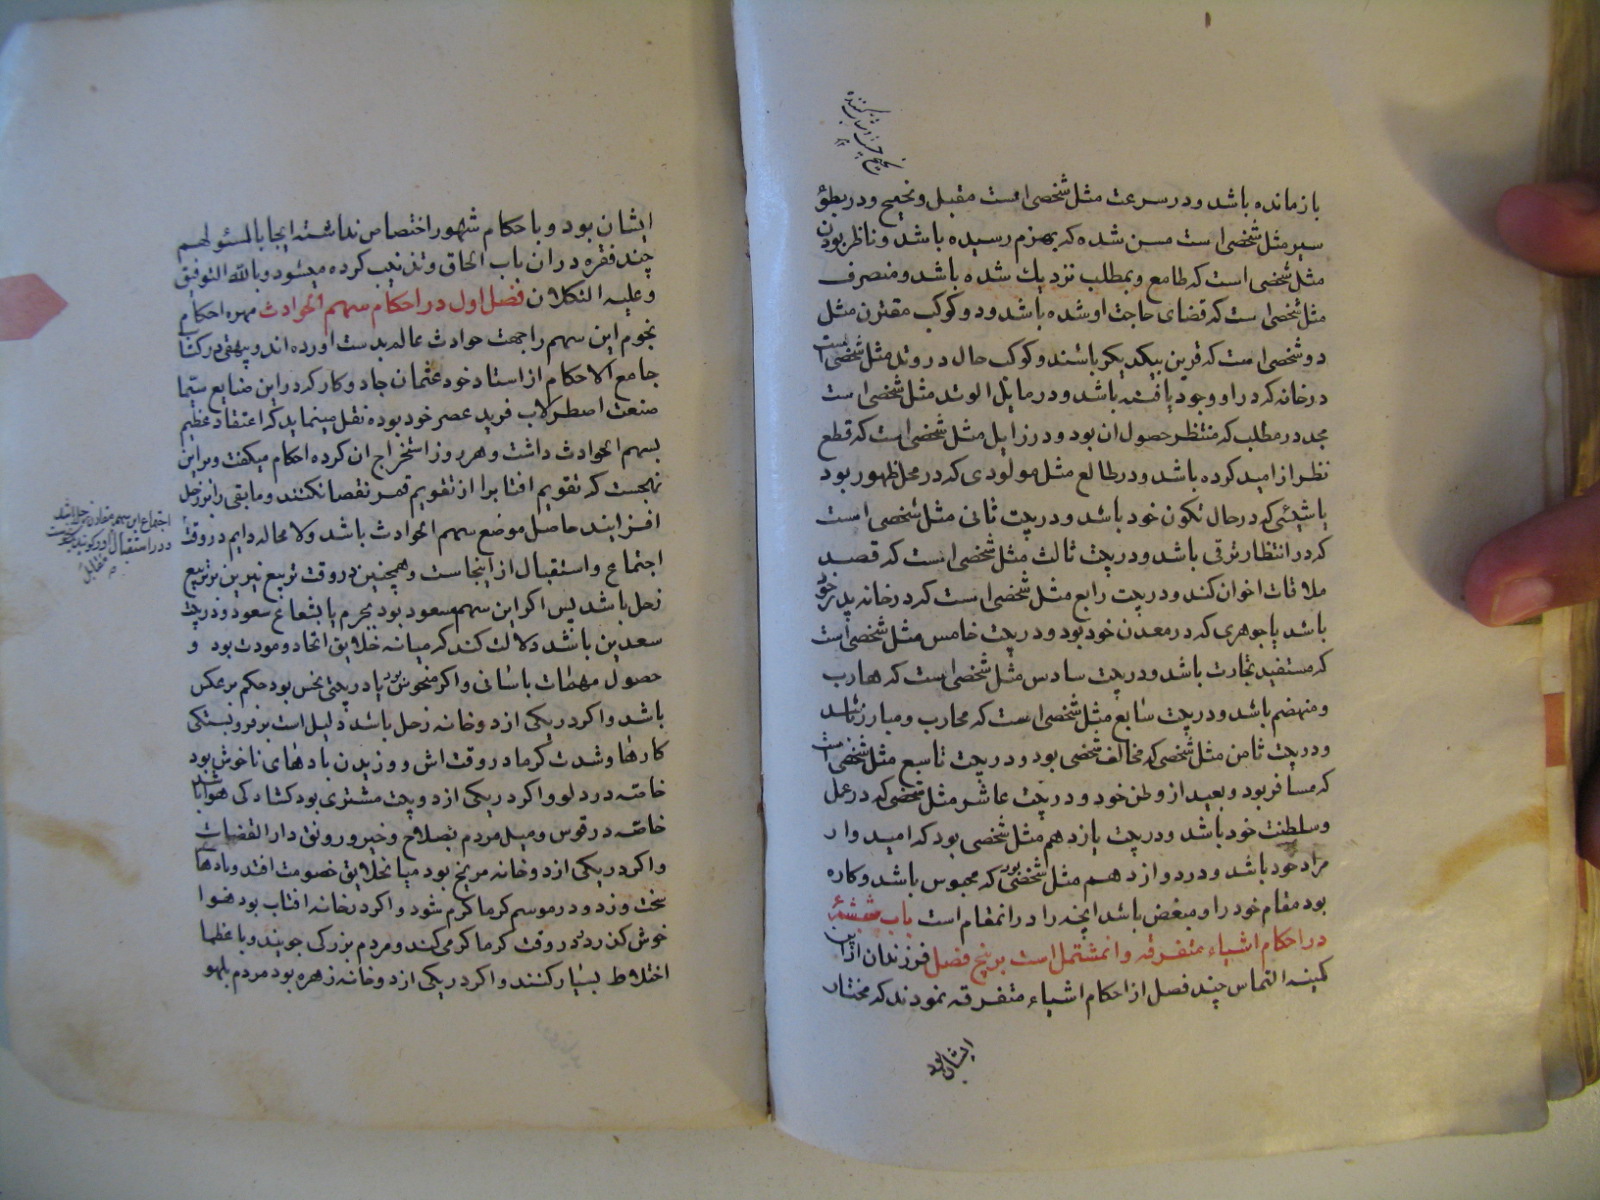 بازمانده باشد و در سرعت مثل شخصی است مقبل و نجیح و در بطؤ
سیر مثل شخصی است مسن شده که بهرم رسیده باشد و ناظر بودن
مثل شخصی است که طامع و بمطلب نزدیك شده باشد و منصرف
مثل شخصی است که قضای حاجت او شده باشد و دو کوکب مقترن مثل
دو شخصی است که قرین بیکدیکر باشند و کوکب حال در وتد مثل شخصی است
در خانه که در او وجود یافته باشد و در مایل الوتد مثل شخصی است
مجد در مطلب که منتظر حصول ان بود و در زایل مثل شخصی است که قطع
نظر از امید کرده باشد و در طالع مثل مولودی که در محل ظهور بود
یا شیئی که در حال تکون خود باشد و در بیت ثانی مثل شخصی است
که در انتظار ترقی باشد و در بیت ثالث مثل شخصی است که قصد
ملاقات اخوان کند و در بیت رابع مثل شخصی است که در خانه پدر خود
باشد یا جوهری که در معدن خود بود و در بیت خامس مثل شخصی است
که مستفید تجارت باشد و در بیت سادس مثل شخصی است که هارب
و منهضم باشد و در بیت سابع مثل شخصی است که محارب و مبارز باشد
و در بیت ثامن مثل شخصی که مخالف شخصی بود و در بیت تاسع مثل شخصی است
که مسافر بود و بعید از وطن خود و در بیت عاشر مثل شخصی که در عمل
و سلطنت خود باشد و در بیت یازدهم مثل شخصی بود که امیدوار
مراد خود باشد و در دوازدهم مثل شخصی بود که محبوس باشد و کاره
بود مقام خود را و مبغض باشد انچه را در انمقام است باب ششم
در احکام اشیاء متفرقه و انمشتمل است بر پنج فصل فرزندان از این
کمینه التماس چند فصل از احکام اشیاء متفرقه نمودند که مختار
ایشان بود
ایشان بود و با حکام شهور اختصاص نداشته ایجابا لمسئولهم
چند فقره در ان باب الحاق و تذنیب کرده میشود و بالله التوفیق
و علیه التکلان فصل اول در احکام سهم الحوادث مهره احکام
نجوم این سهم را جهت حوادث عالم بدست اورده اند و بیهقی در کتاب
جامع الاحکام از استاد خود عثمان جادوکار که در این صنایع سیما
صنعت اصطرلاب فرید عصر خود بوده نقل مینماید که اعتقاد عظیم
بسهم الحوادث داشت و هر روز استخراج ان کرده احکام میکفت و بر این
نهجست که تقویم افتاب را از تقویم قمر نقصان کنند و ما بقی را بر زحل
افزایند حاصل موضع سهم الحوادث باشد و لا محاله دایم در وقت
اجتماع و استقبال از اینجاست و همچنین در وقت تربیع نیرین بر تربیع
زحل باشد پس اکر این سهم مسعود بود بجرم یا بشعاع سعود و در بیت
سعدین باشد دلالت کند که میانه خلایق اتحاد و مودت بود و
حصول مهمات باسانی و اکر منحوس بود یا در بیتی نحس بود حکم بر عکس
باشد و اکر در یکی از دو خانه زحل باشد دلیل است بر فروبستکی
کارها و شدت کرما در وقت اش و وزیدن بادهای ناخوش بود
خاصه در دلو و اکر در یکی از دو بیت مشتری بود کشادکی هوا باشد
خاصه در قوس و میل مردم بصلاح و خیر و رونق دار القضات
و اکر در یکی از دو خانه مریخ بود میان خلایق خصومت افتد و بادها
سخت وزد و در موسم کرما کرم شود و اکر در خانه افتاب بود هوا
خوش کذرد در وقت کرما کرمی کند و مردم بزرکی جویند و با عظما
اختلاط بسیار کنند و اکر در یکی از دو خانه زهره بود مردم بلهو
اجتماع این سهم مقارن زحل باشد
و در استقبال
مقابل